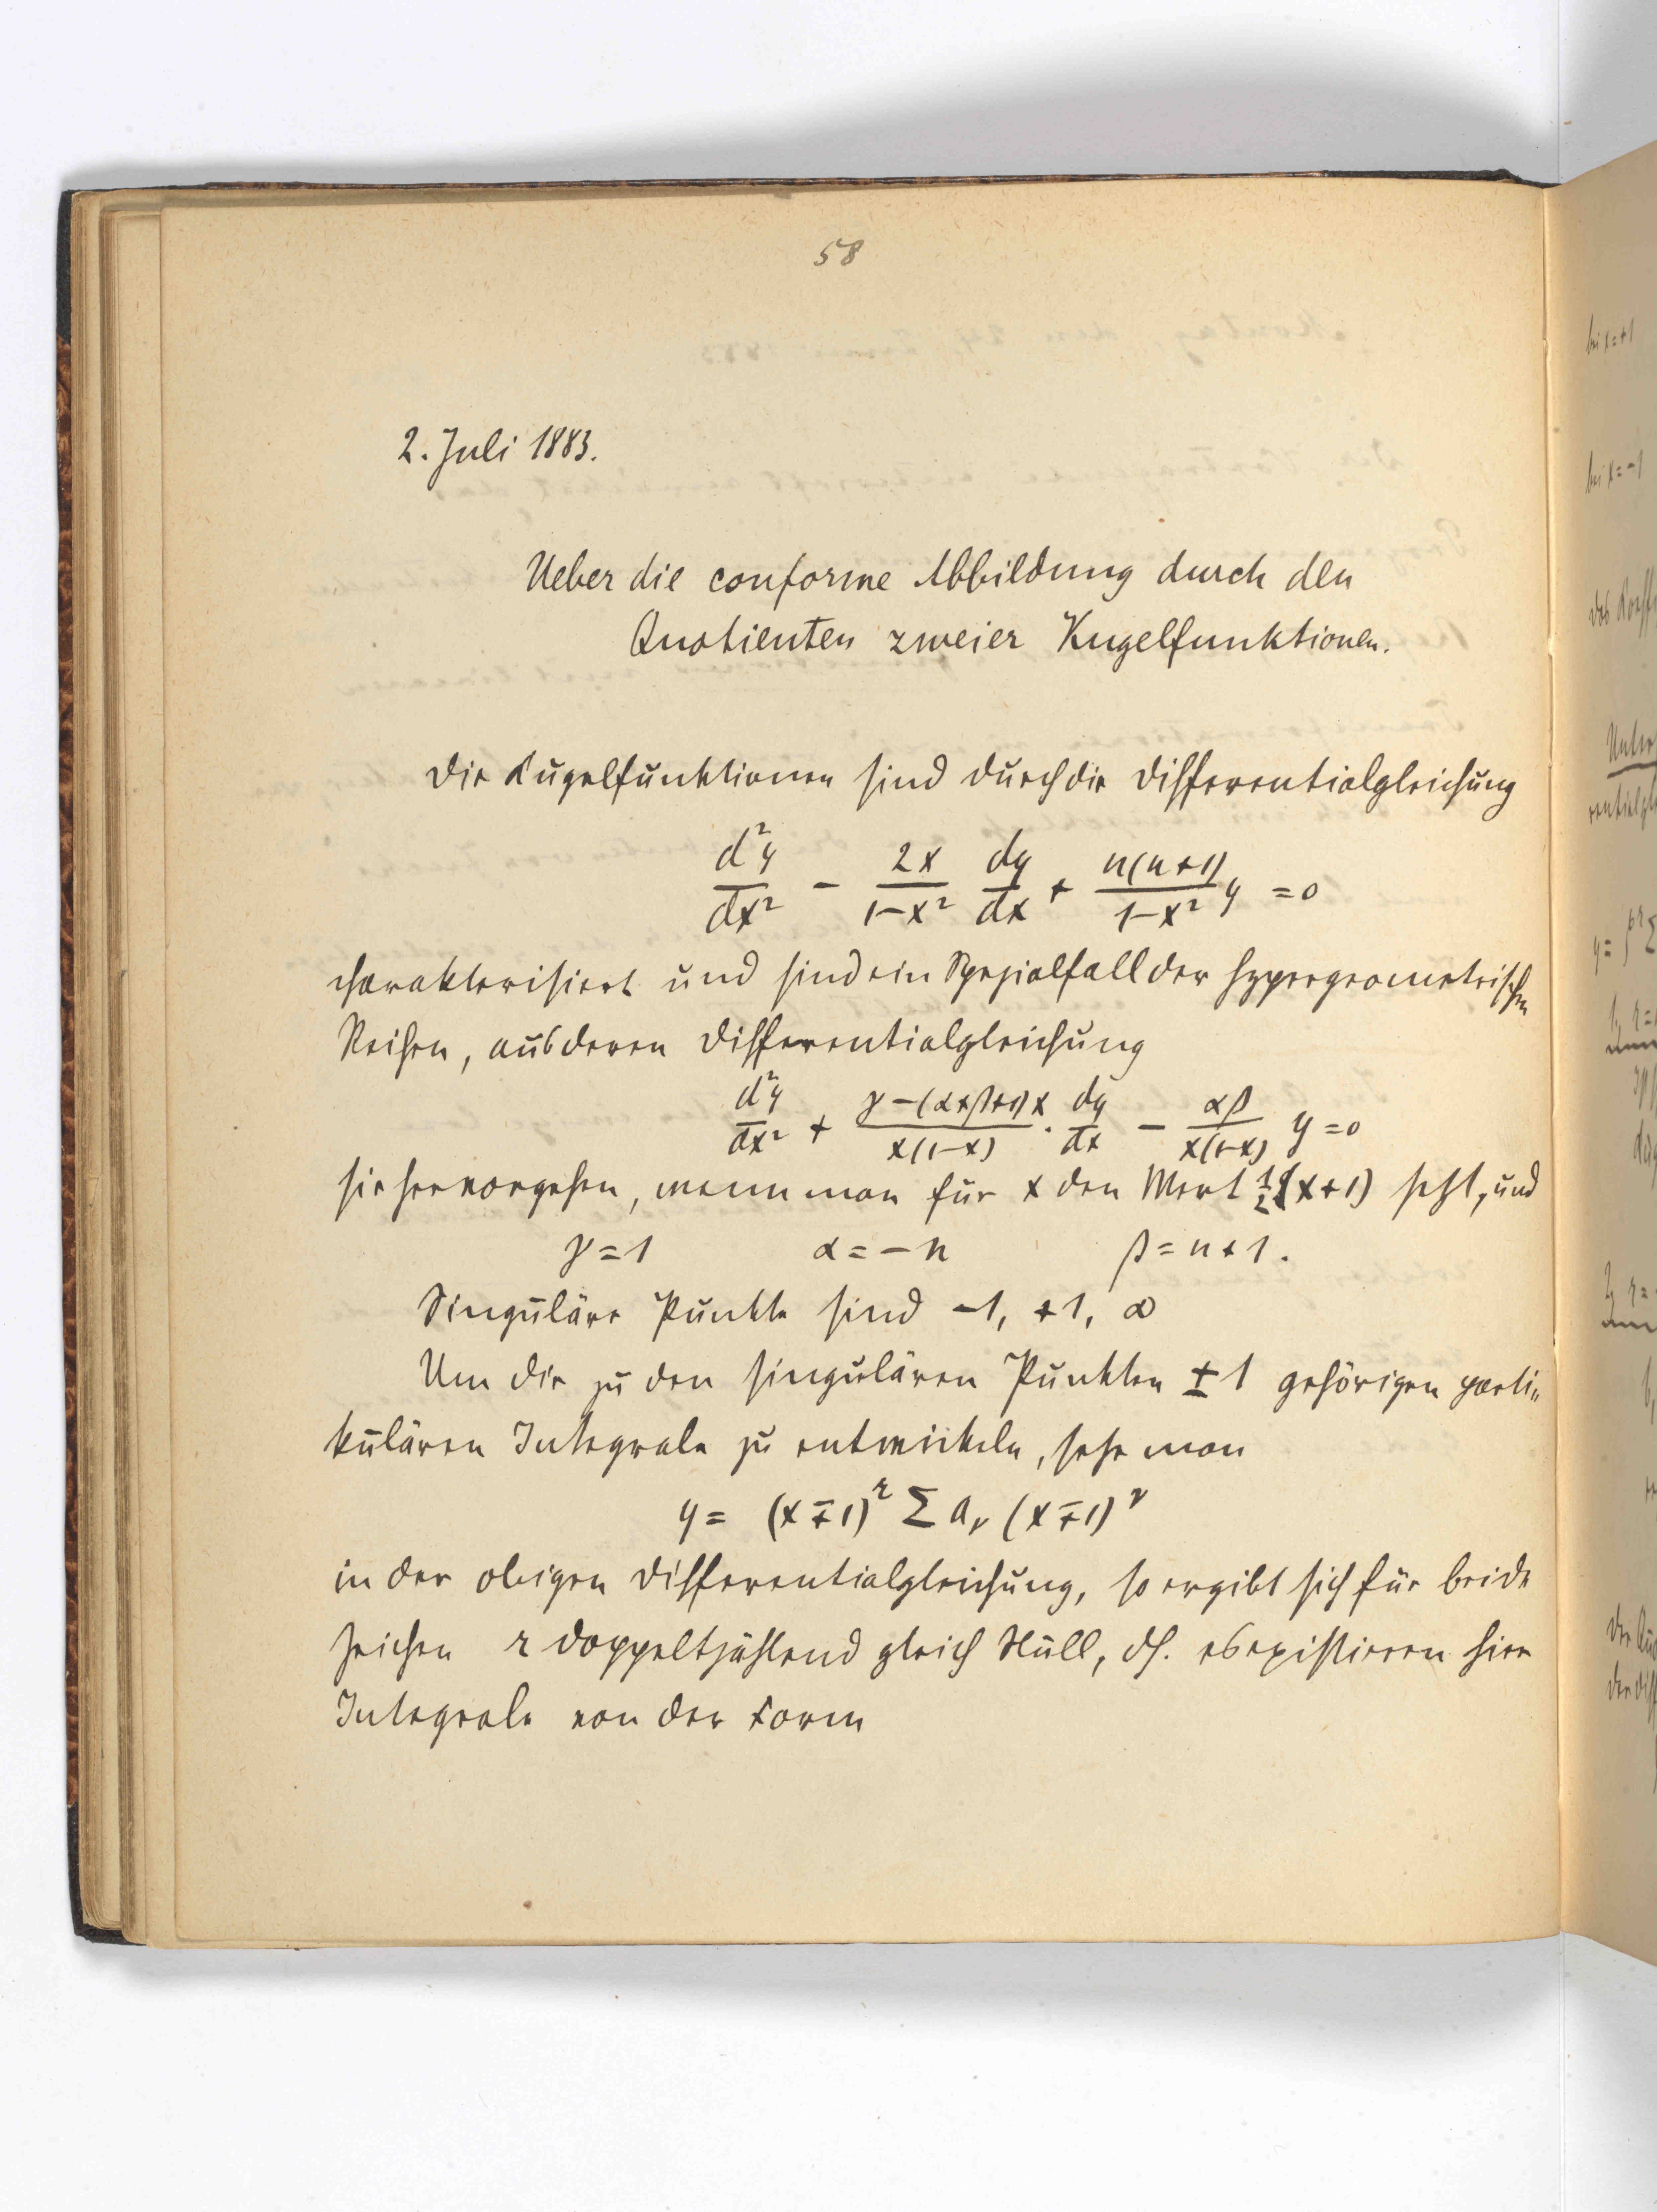 58
2. Juli 1883.
Ueber die conforme Abbildung durch den
Quotienten zweier Kugelfunktionen.
Die Kugelfunktionen sind durch die Differentialgleichung
d²y/dx² - 2x/(1-x²) dy/dx + n(n+1)/(1-x²) y = 0
charakterisiert und sind ein Spezialfall der hypergeometrischen
Reihen, aus deren Differentialgleichung
d²y/dx² + (γ-(α+β+1)x)/(x(1-x)) · dy/dx - αβ/(x(1-x)) y = 0
sie hervorgehen, wenn man für x den Wert ½(x+1) setzt, und
γ = 1 α = -n β = n+1.
Singuläre Punkte sind -1, +1, ∞
Um die zu den singulären Punkten ±1 gehörigen parti-
kulären Integrale zu entwickeln, setze man
y = (x∓1)^r Σ a_ν (x∓1)^ν
in der obigen Differentialgleichung, so ergibt sich für beide
Zeichen r doppeltzählend gleich Null, dh. es existieren hier
Integrale von der Form
bei x=+1
bei x=-1